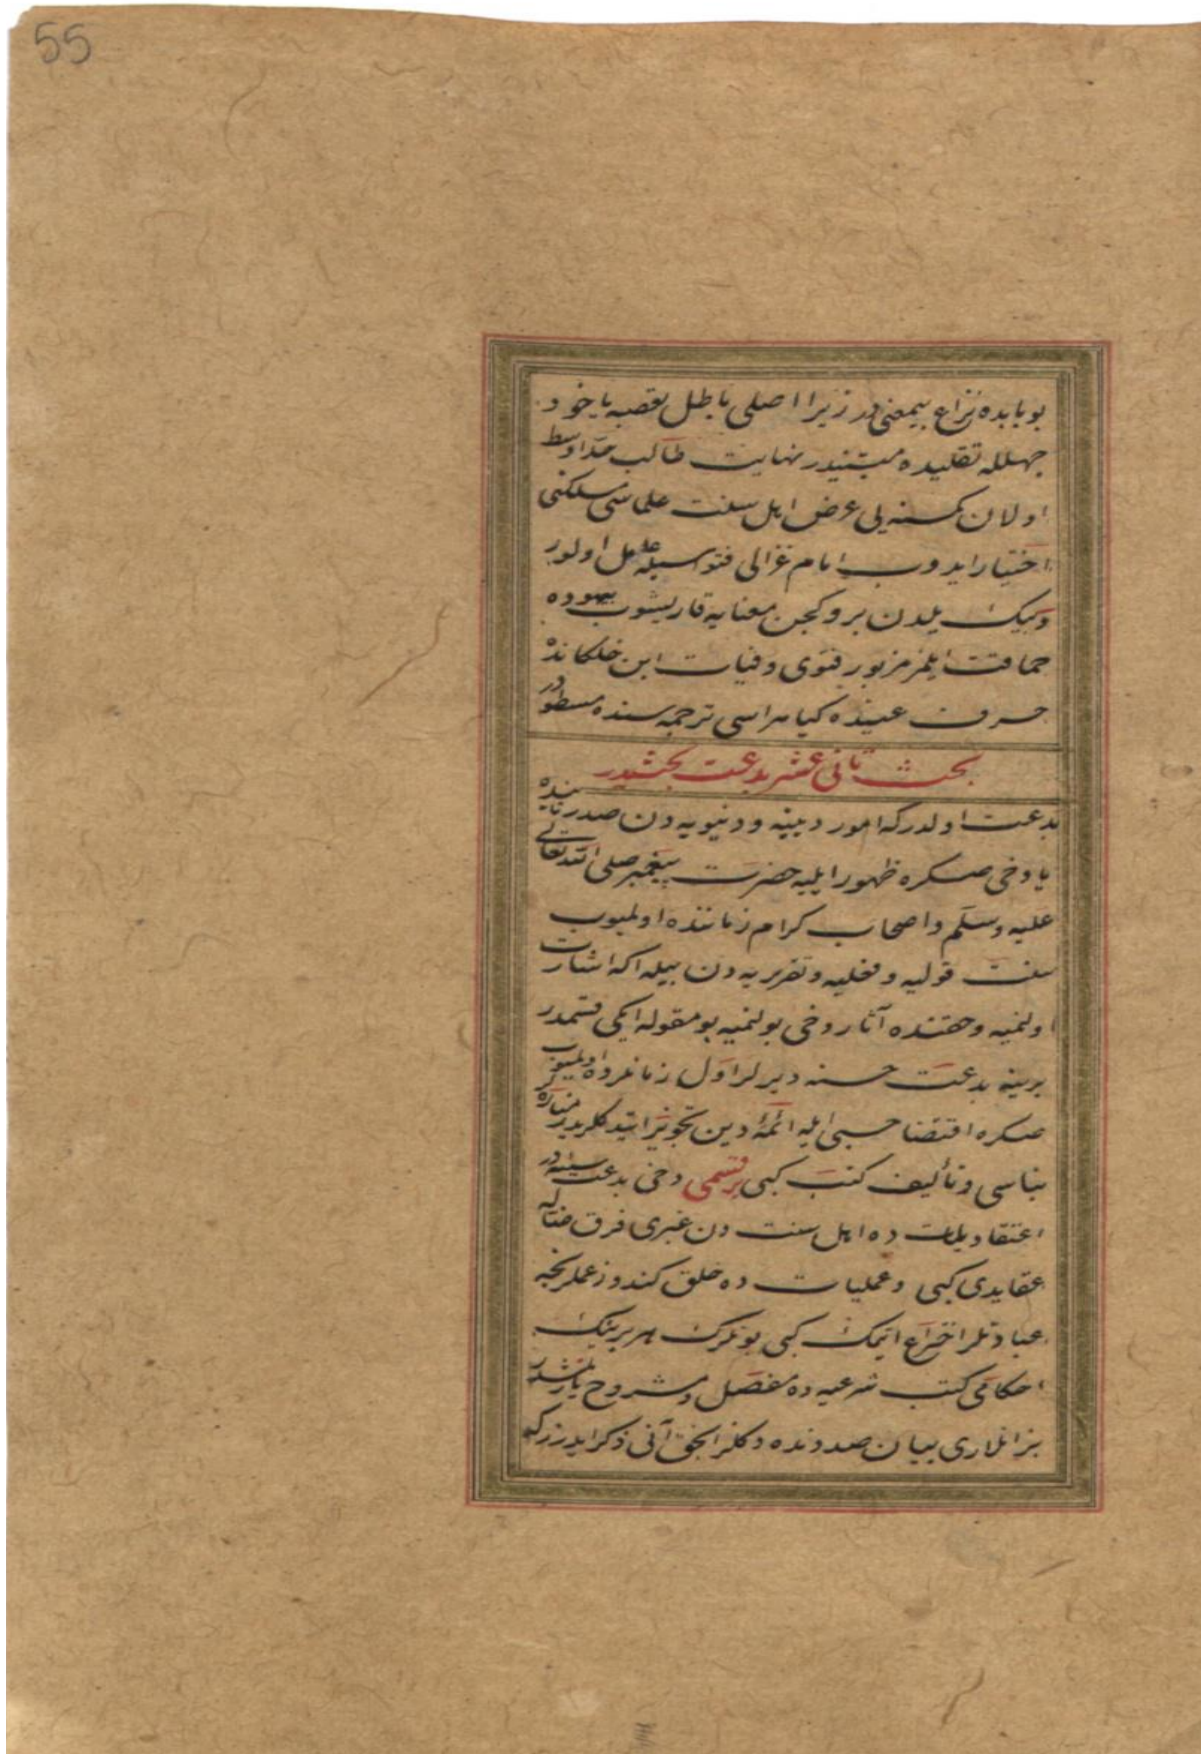 55
بو بابده نزاع بیمعنی در زیرا اصلی باطل تعصبه یاخود
جهلله تقلیده مبتنیدر نهایت طالب حد اوسط
اولان کمسنه بی غرض اهل سنت علماسی مسلکنی
اختیار ایدوب امام غزالی فتواسیله عامل اولور
وبیك یلدن برو کچن معنایه قاریشوب بیهوده
حماقت ایلمز مزبور فتوی وفیات ابن خلکانده
حرف عینده کیا هراسی ترجمه سنده مسطوردر
بحث ثانی عشر بدعت بحثیدر
بدعت اولدرکه امور دینیه ودنیویه دن صدر ثانیده
یا دخی صکره ظهور ایلیه حضرت پیغمبر صلی الله تعالی
علیه وسلم واصحاب کرام زماننده اولمیوب
سنت قولیه وفعلیه وتقریریه دن بیله اکا اشارت
اولنمیه وحقنده آثار دخی بولنمیه بو مقوله ایکی قسمدر
برینه بدعت حسنه دیرلر اول زمانلرده اولمیوب
صکره اقتضا حسبی ایله ائمهٔ دین تجویز ایتدکلریدر مناره
بناسی وتألیف کتب کبی بر قسمی دخی بدعت سیئه در
اعتقادیات ده اهل سنت دن غیری فرق ضاله
عقایدی کبی وعملیات ده خلق کندو زعملرنجه
عبادتلر اختراع ایتمك کبی بونلرك هر برینك
احکامی کتب شرعیه ده مفصل ومشروح یازلمشدر
بز انلاری بیان صددنده دکلز انجق آنی ذکر ایدرز که